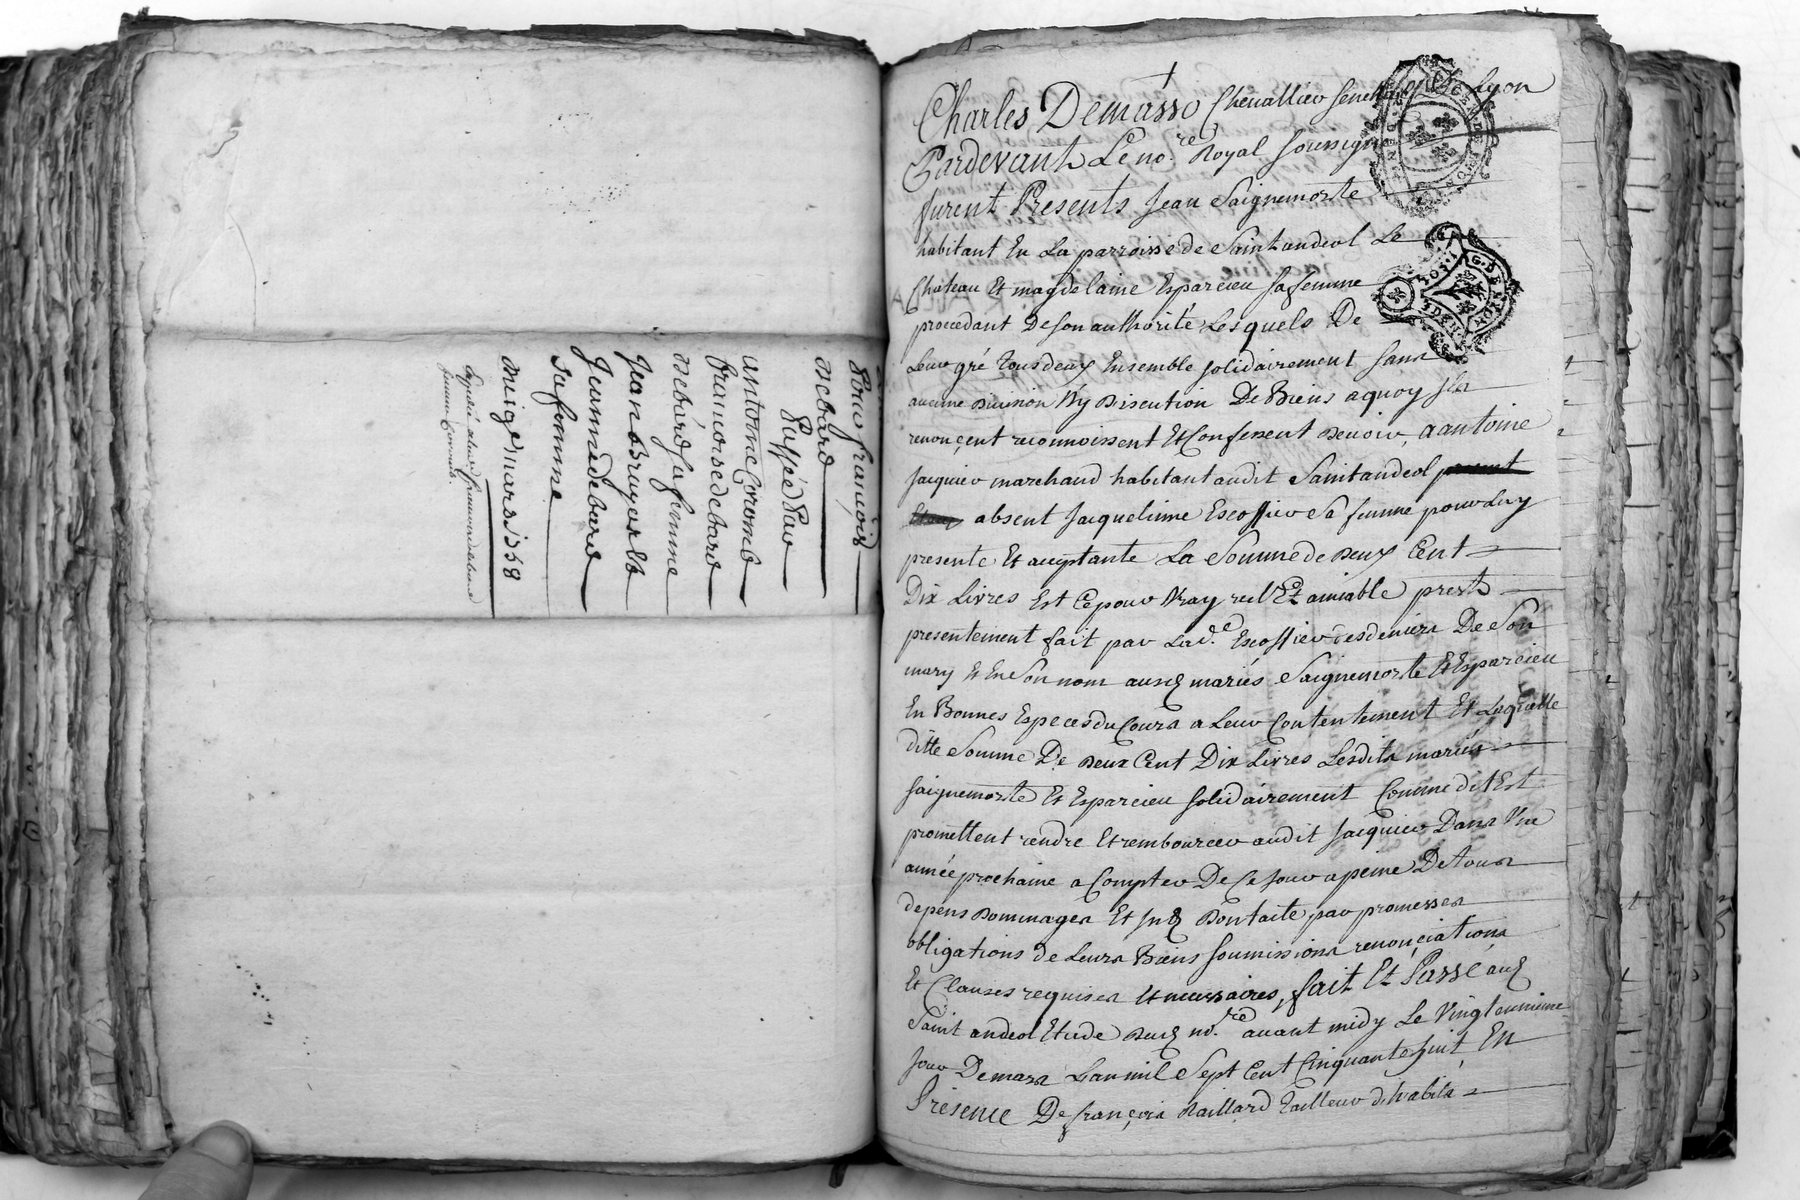 pour françois
debard
Passé Par
antoine Coromb
françoise debard
debard sa femme
Jean Bruyas et
Jeanne debard
sa femme
du 19e mars 1758
Charles Demasso Chevallier Senechal de Lyon
Pardevant Le no.re Royal soussigné
furent Presents Jean Saignemorte
habitant En La parroisse de Saint andeol Le
Chateau Et magdelaine Esparcieu sa femme
procedant De son authorité Lesquels De
Leur gré tous deux Ensemble solidairement sans
aucune Division Ny Discution De Biens a quoy ils
renonçent reconnoissent Et Confessent devoir, a antoine
Jacquier marchand habitant audit Saint andeol
absent Jacquelinne Escoffier Sa femme pour Luy
presente Et acceptante La Somme de deux Cent
Dix Livres Et Ce pour Vray reel Et amiable prest
presentement fait par Lad.e Escoffier des deniers De Son
mary Et En Son nom ausd mariés Saignemorte Et Esparcieu
En Bonnes Especes du Cours a Leur Contentement Et Laquelle
ditte Somme De deux Cent Dix Livres Lesdits mariés
Saignemorte Et Esparcieu solidairement Comme dit Est
promettent rendre Et rembourcer audit Jacquier Dans Une
année prochaine a Compter De Ce Jour a peine De tous
depens dommages Et Int Dont aite par promesses
obligations de Leurs Biens soumissions renonçiations
Et Clauses requises Et necessaires, fait Et Passé aud
Saint andeol Etude dud no.re avant midy Le Vingt unieme
Jour De mars L'an mil Sept Cent Cinquante huit En
Présence De françois Raillard tailleur d'habits